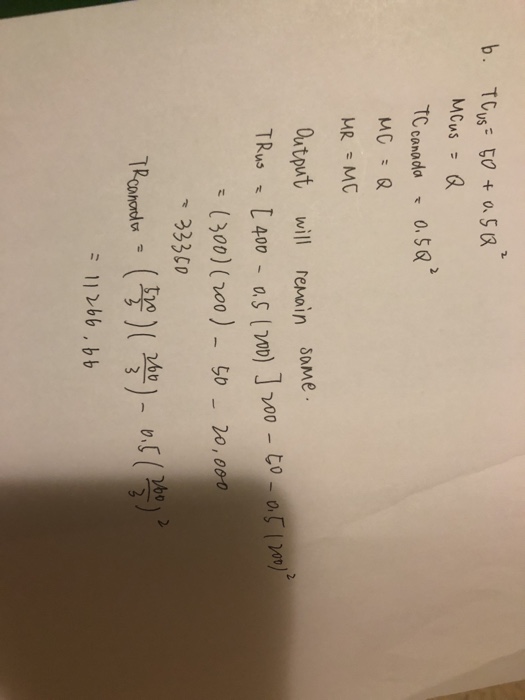 b. TCus = 50 + 0.5Q²
MCus = Q
TCcanada = 0.5Q²
MC = Q
MR = MC
Output will remain same.
TRus = [400 - 0.5(200)]200 - 50 - 0.5(200)²
= (300)(200) - 50 - 20,000
= 33350
TRcanada = (520/3)(260/3) - 0.5(260/3)²
= 11266.66